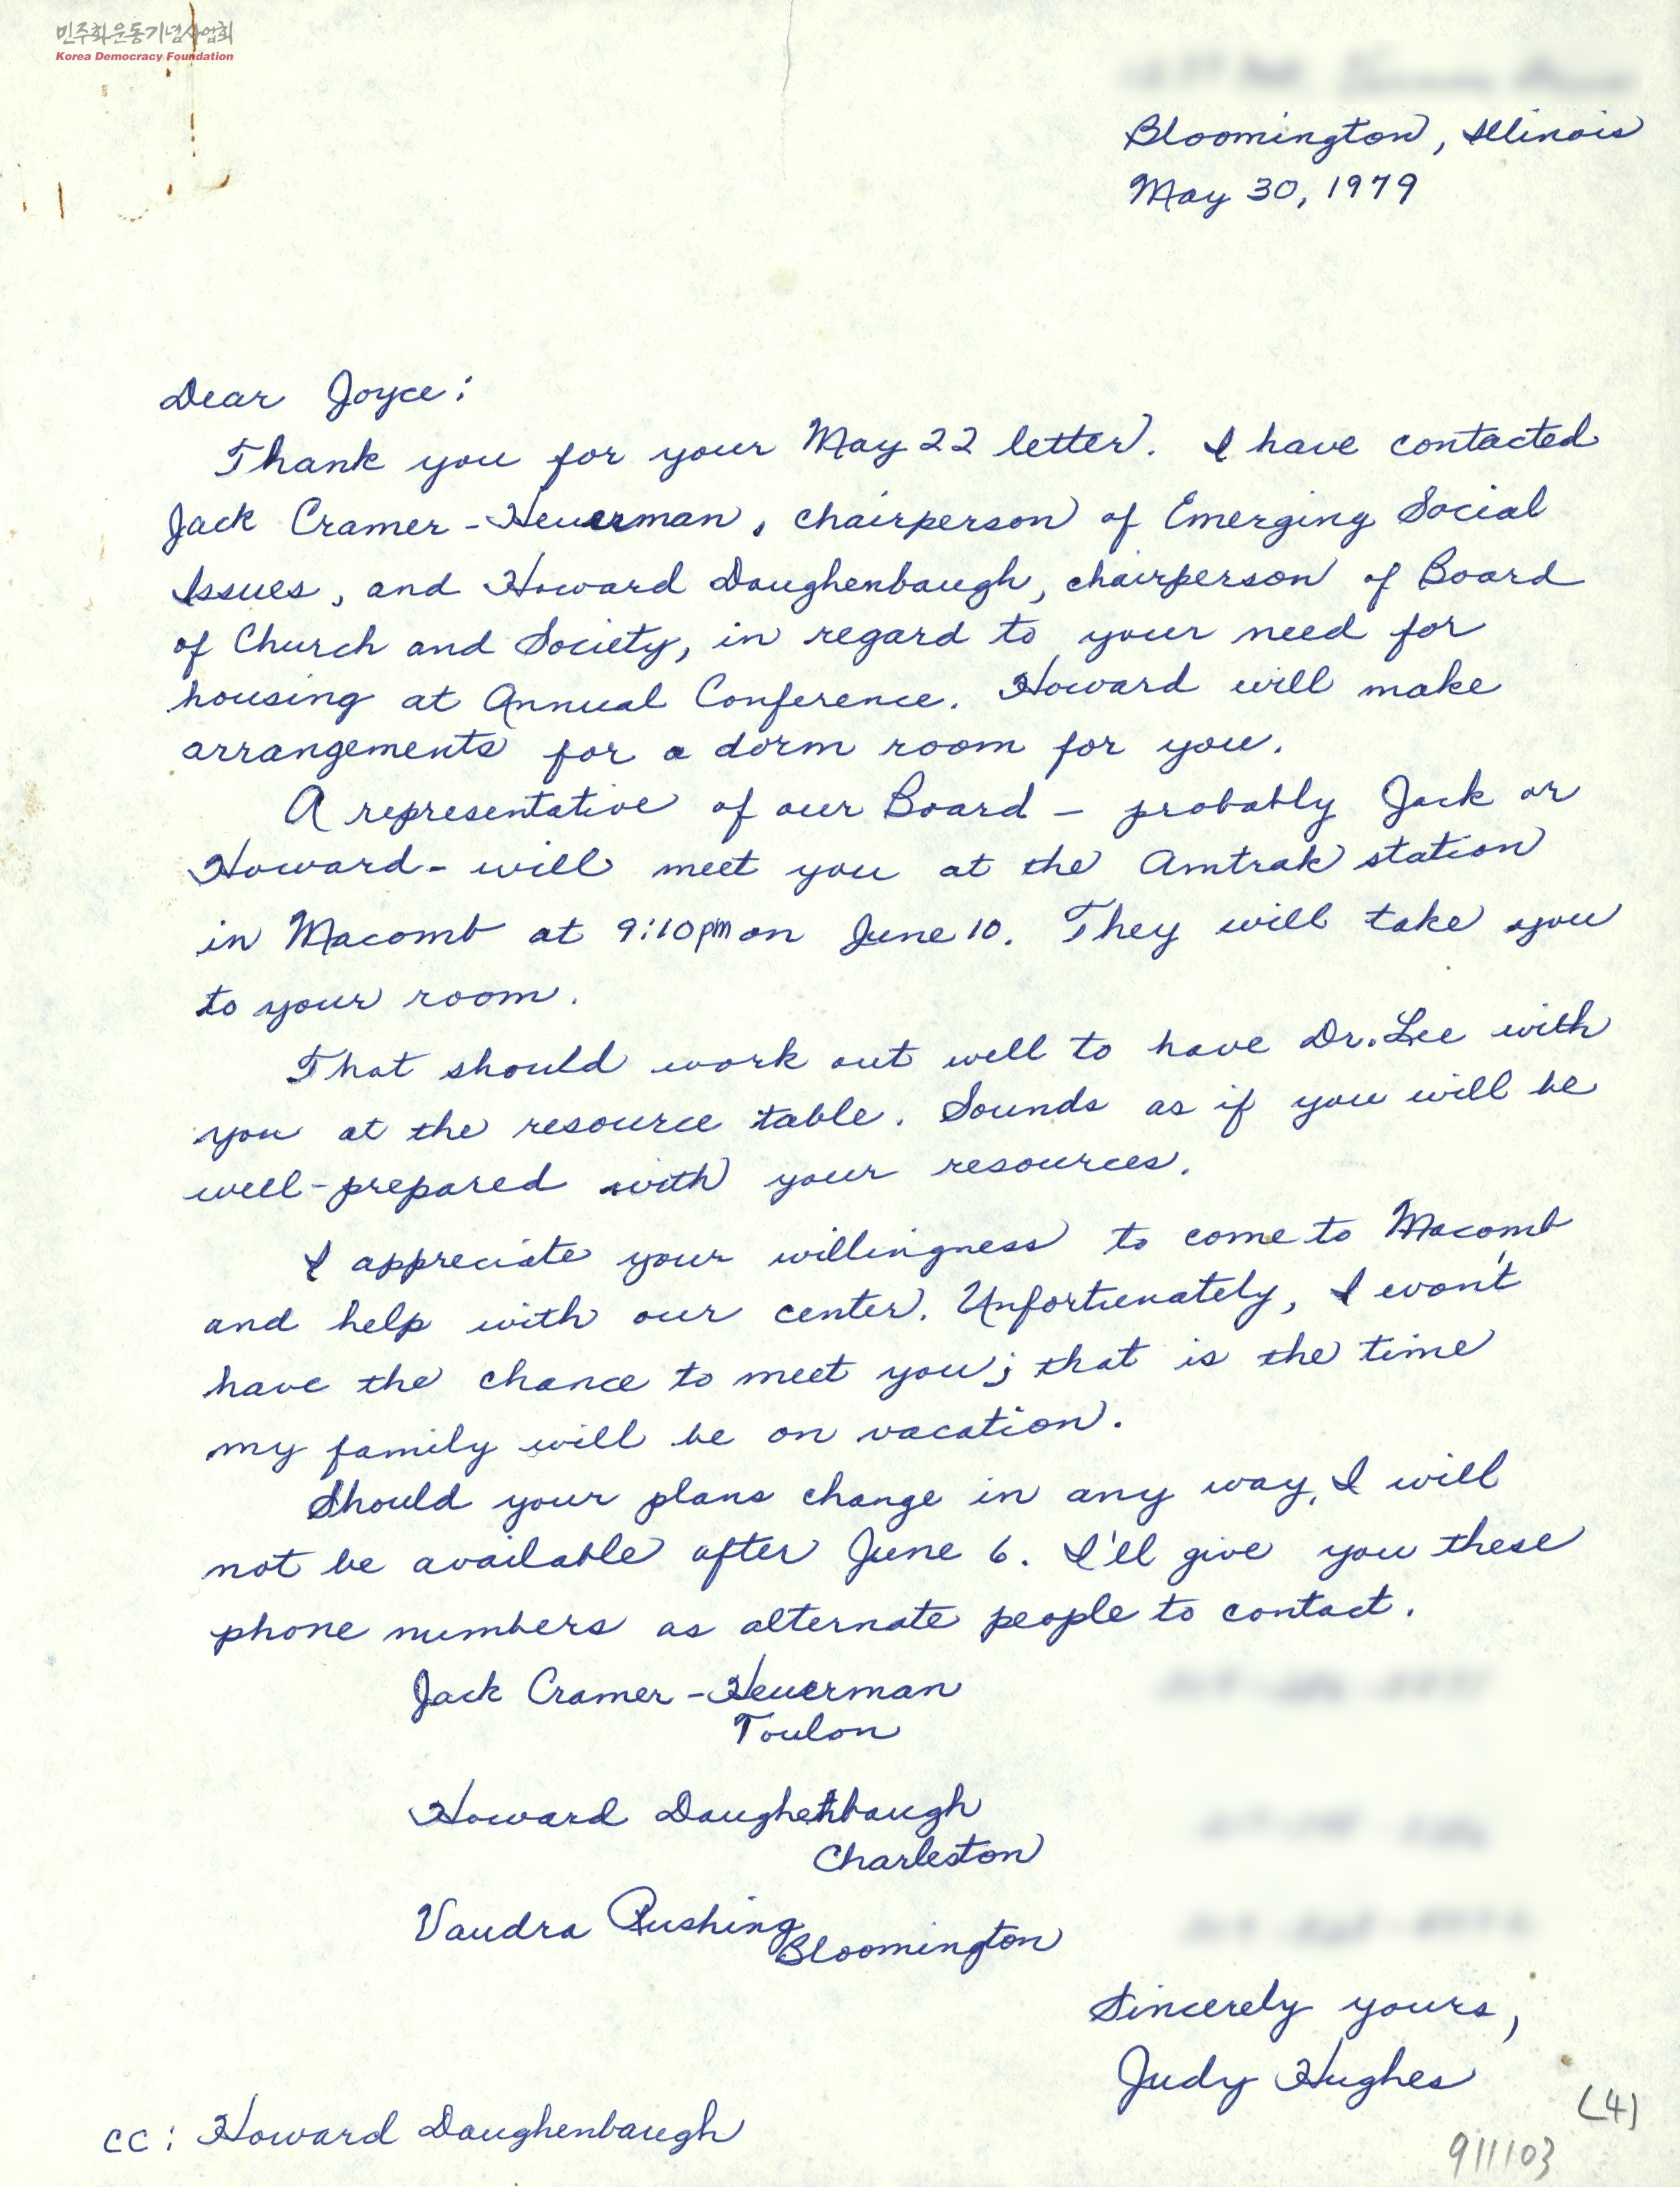 민주화운동기념사업회
Korea Democracy Foundation
Bloomington, Illinois
May 30, 1979
Dear Joyce:
Thank you for your May 22 letter. I have contacted
Jack Cramer-Heuerman, chairperson of Emerging Social
Issues, and Howard Daughenbaugh, chairperson of Board
of Church and Society, in regard to your need for
housing at Annual Conference. Howard will make
arrangements for a dorm room for you.
A representative of our Board - probably Jack or
Howard - will meet you at the Amtrak station
in Macomb at 9:10 pm on June 10. They will take you
to your room.
That should work out well to have Dr. Lee with
you at the resource table. Sounds as if you will be
well-prepared with your resources.
I appreciate your willingness to come to Macomb
and help with our center. Unfortunately, I won't
have the chance to meet you; that is the time
my family will be on vacation.
Should your plans change in any way, I will
not be available after June 6. I'll give you these
phone numbers as alternate people to contact.
Jack Cramer-Heuerman
Toulon
Howard Daughenbaugh
Charleston
Vaudra Rushing
Bloomington
Sincerely yours,
Judy Hughes
cc: Howard Daughenbaugh
(4)
911103